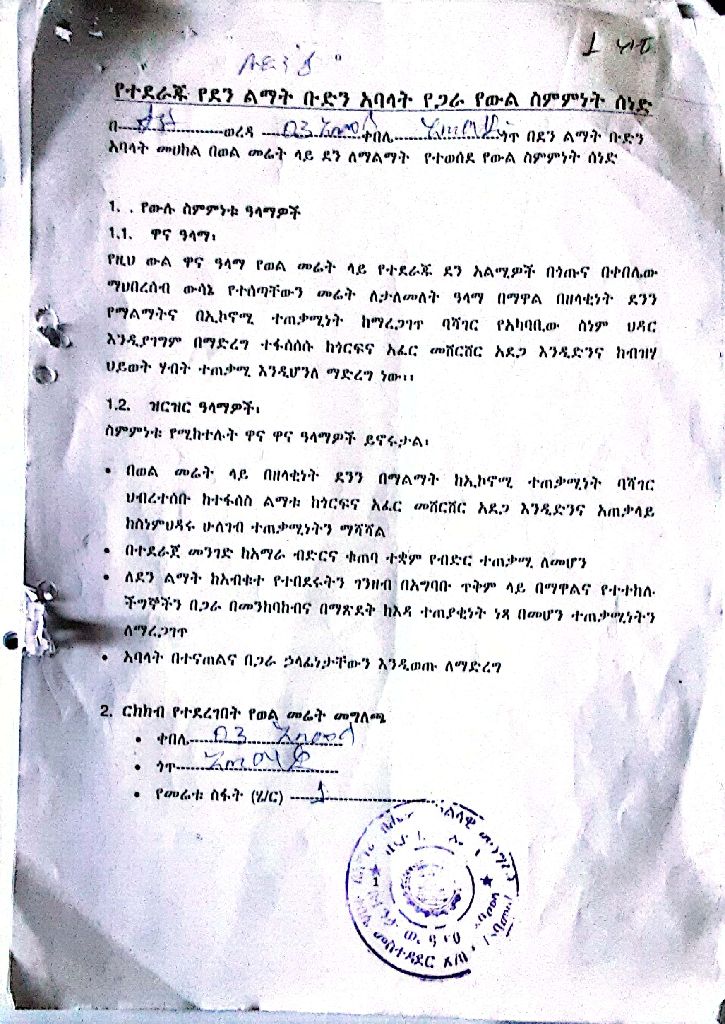 የተደራጁ የደን ልማት ቡድን አባላት የጋራ የውል ስምምነት ሰነድ
በ ወረዳ 03 ቀበሌ ጎጥ በደን ልማት ቡድን
አባላት መሀከል በወል መሬት ላይ ደን ለማልማት የተወሰደ የውል ስምምነት ሰነድ
1. . የውሉ ስምምነቱ ዓላማዎች
1.1. ዋና ዓላማ፡
የዚህ ውል ዋና ዓላማ የወል መሬት ላይ የተደራጁ ደን አልሚዎች በጎጡና በቀበሌው
ማህበረሰብ ውሳኔ የተሰጣቸውን መሬት ለታለመለት ዓላማ በማዋል በዘላቂነት ደንን
የማልማትና በኢኮኖሚ ተጠቃሚነት ከማረጋገጥ ባሻገር የአካባቢው ስነም ህዳር
እንዲያገግም በማድረግ ተፋሰሰሱ ከጎርፍና አፈር መሸርሸር አደጋ እንዲድንና ከብዝሃ
ህይወት ሃብት ተጠቃሚ እንዲሆንለ ማድረግ ነው፡፡
1.2. ዝርዝር ዓላማዎች፡
ስምምነቱ የሚከተሉት ዋና ዋና ዓላማዎች ይኖሩታል፡
• በወል መሬት ላይ በዘላቂነት ደንን በማልማት ከኢኮኖሚ ተጠቃሚነት ባሻገር
ህብረተሰቡ ከተፋሰስ ልማቱ ከጎርፍና አፈር መሸርሸር አደጋ እንዲድንና አጠቃላይ
ከስነምህዳሩ ሁለገብ ተጠቃሚነትን ማሻሻል
• በተደራጀ መንገድ ከአማራ ብድርና ቁጠባ ተቋም የብድር ተጠቃሚ ለመሆን
• ለደን ልማት ከአብቁተ የተበደሩትን ገንዘብ በአግባቡ ጥቅም ላይ በማዋልና የተተከሉ
ችግኞችን በጋራ በመንከባከብና በማጽደት ከእዳ ተጠያቂነት ነጻ በመሆን ተጠቃሚነትን
ለማረጋገጥ
• አባላት በተናጠልና በጋራ ኃላፊነታቸውን እንዲወጡ ለማድረግ
2. ርክክብ የተደረገበት የወል መሬት መግለጫ
• ቀበሌ 03
• ጎጥ
• የመሬቱ ስፋት (ሄ/ር) 1
1